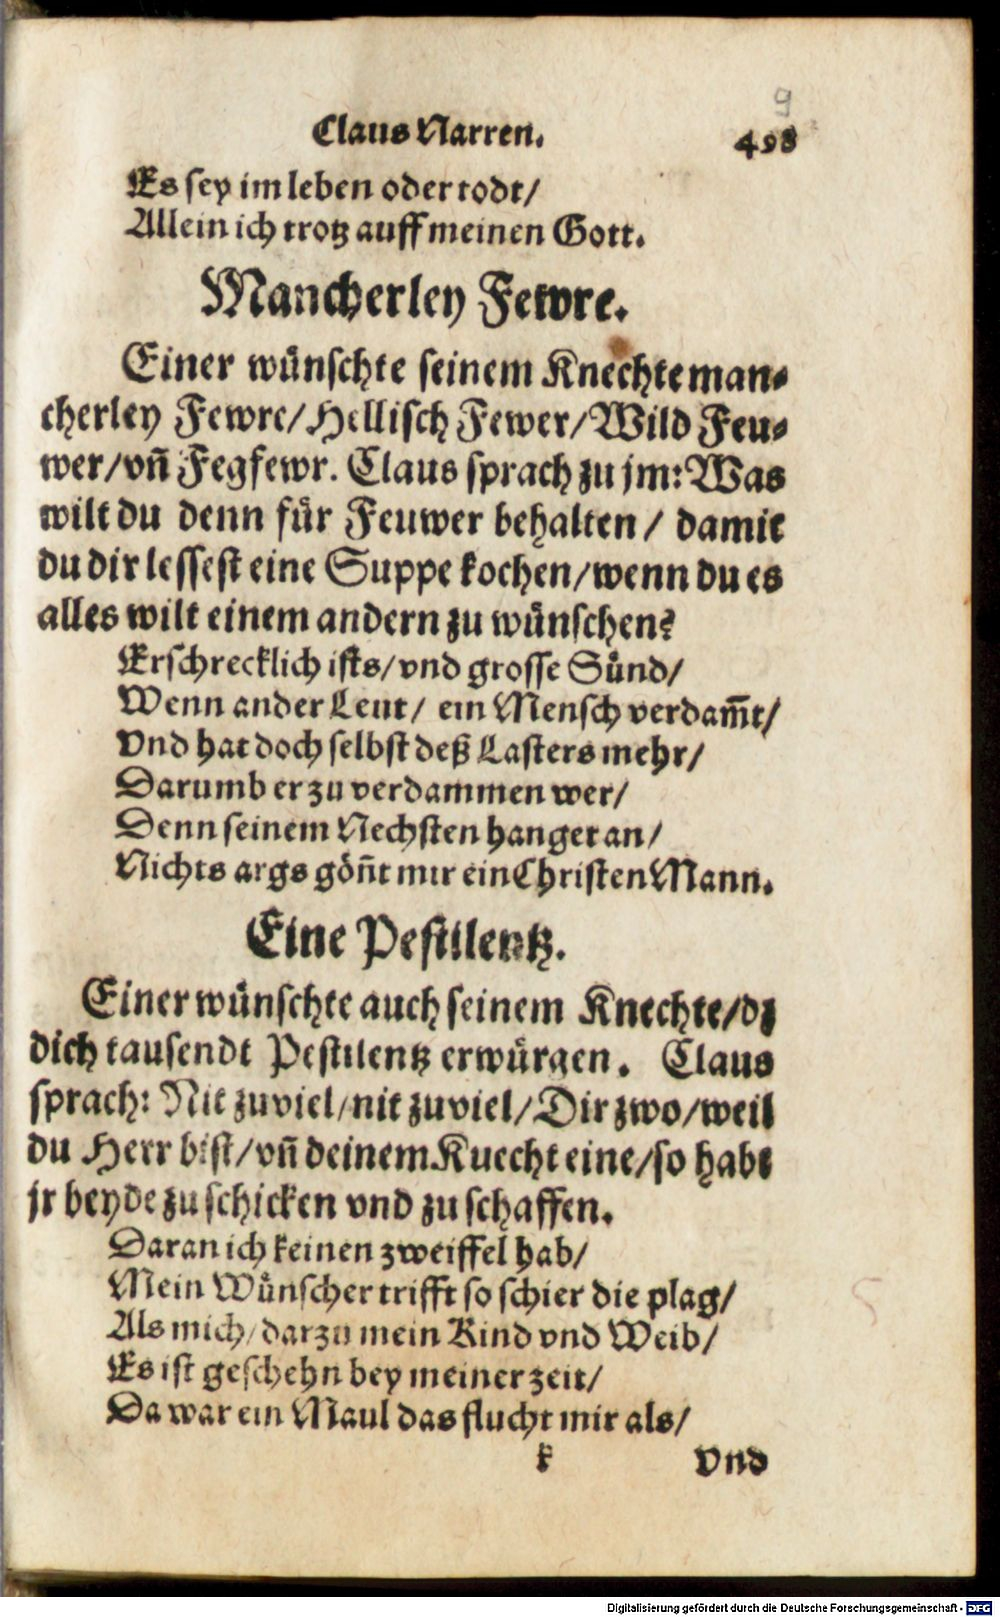 9
Claus Narren. 498
Es sey im leben oder todt/
Allein ich trotz auff meinen Gott.
Mancherley Fewre.
Einer wünschte seinem Knechte man-
cherley Fewre/Hellisch Fewer/Wild Feu-
wer/vñ Fegfewr. Claus sprach zu jm: Was
wilt du denn für Feuwer behalten/ damit
du dir lessest eine Suppe kochen/wenn du es
alles wilt einem andern zu wünschen?
Erschrecklich ists/vnd grosse Sünd/
Wenn ander Leut/ ein Mensch verdam̃t/
Vnd hat doch selbst deß Lasters mehr/
Darumb er zu verdammen wer/
Denn seinem Nechsten hanget an/
Nichts args göñt mir ein Christen Mann.
Eine Pestilentz.
Einer wünschte auch seinem Knechte/dz
dich tausendt Pestilentz erwürgen. Claus
sprach: Nit zuviel/nit zuviel/Dir zwo/weil
du Herr bist/vñ deinem Kuecht eine/so habt
jr beyde zu schicken vnd zu schaffen.
Daran ich keinen zweiffel hab/
Mein Wünscher trifft so schier die plag/
Als mich/darzu mein Kind vnd Weib/
Es ist geschehn bey meiner zeit/
Da war ein Maul das flucht mir als/
k Vnd
Digitalisierung gefördert durch die Deutsche Forschungsgemeinschaft - DFG